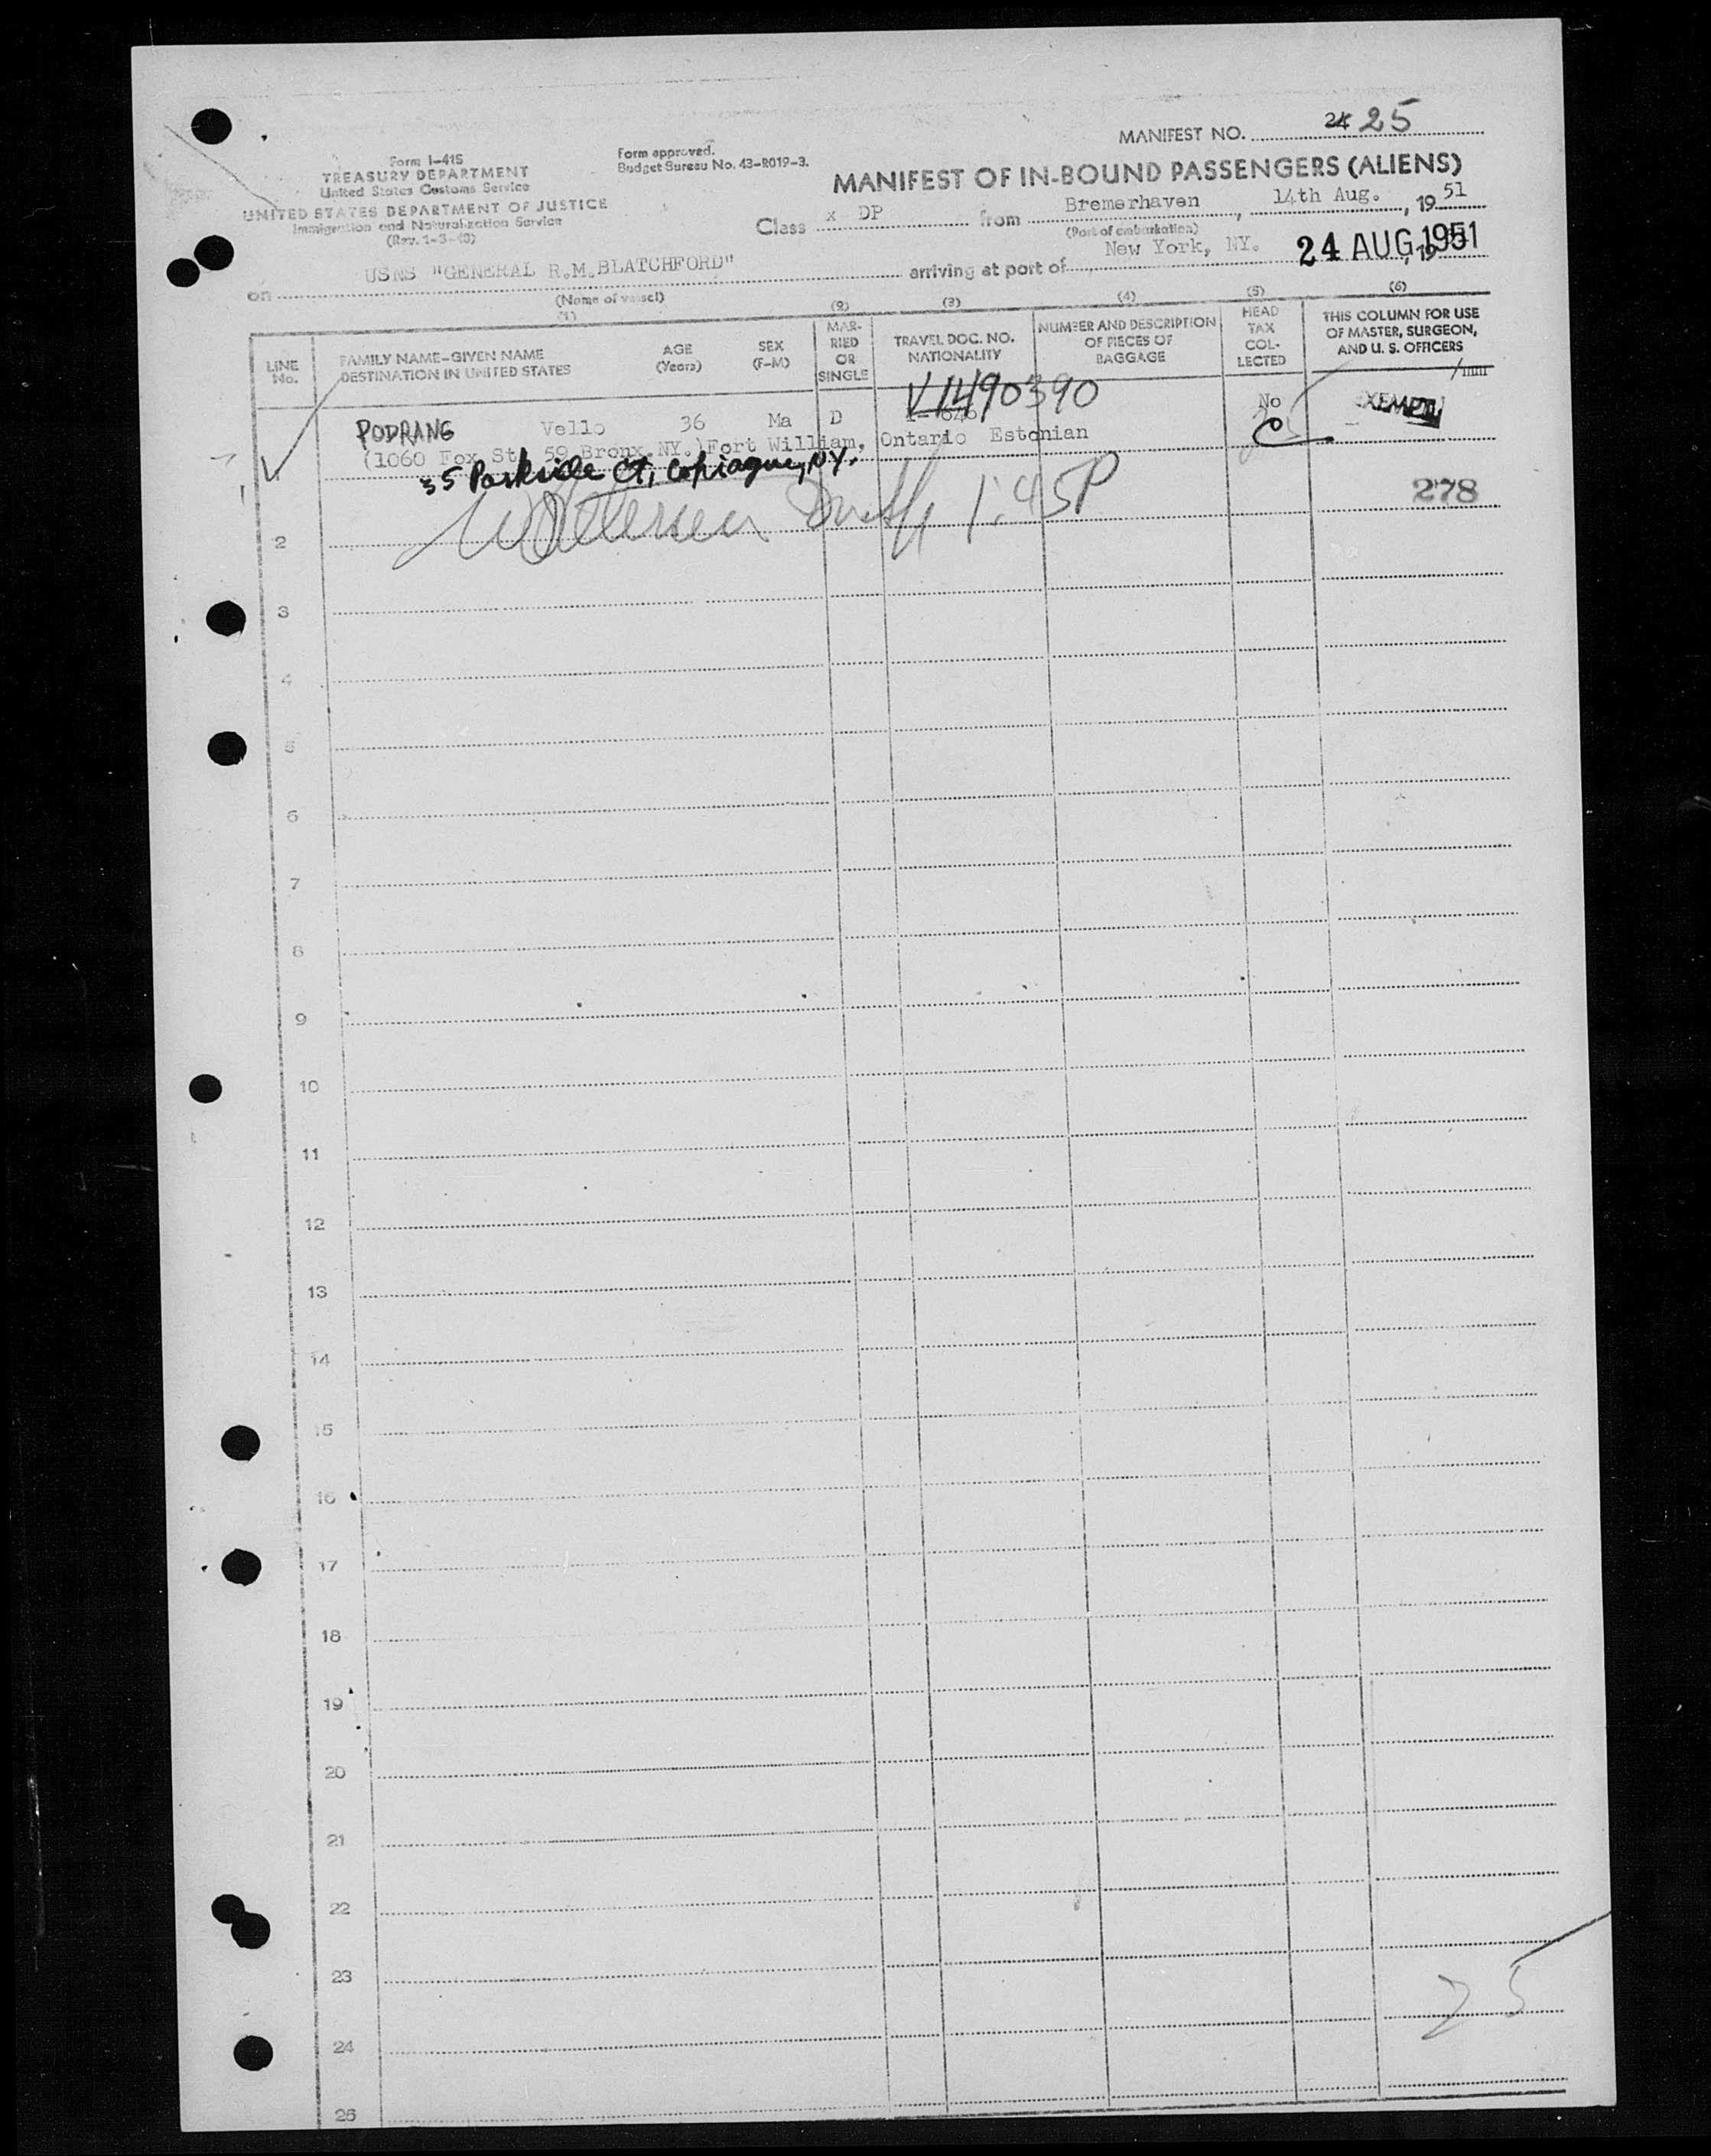 MANIFEST NO. 24 25
Form I-415
TREASURY DEPARTMENT
United States Customs Service
UNITED STATES DEPARTMENT OF JUSTICE
Immigration and Naturalization Service
Form approved.
Budget Bureau No. 43-R019-3.
MANIFEST OF IN-BOUND PASSENGERS (ALIENS)
Class x DP from Bremerhaven, 14th Aug., 1951
(Port of embarkation)
on USNS "GENERAL R.M.BLATCHFORD" arriving at port of New York, NY. 24 AUG 1951
(Name of vessel)
(1) (2) (3) (4) (5) (6)
LINE No.
FAMILY NAME–GIVEN NAME
DESTINATION IN UNITED STATES
AGE (Years)
SEX (F-M)
MAR-RIED OR SINGLE
TRAVEL DOC. NO. NATIONALITY
NUMBER AND DESCRIPTION OF PIECES OF BAGGAGE
HEAD TAX COL-LECTED
THIS COLUMN FOR USE OF MASTER, SURGEON, AND U. S. OFFICERS
V1490390
PODRANG Vello 36 Ma D No EXEMPT
(1060 Fox St. 59 Bronx.NY.)Fort William, Ontario Estonian
35 Parkside Ct, Copiague, NY.
1:45P
278
2
3
4
5
6
7
8
9
10
11
12
13
14
15
16
17
18
19
20
21
22
23
24
25
25